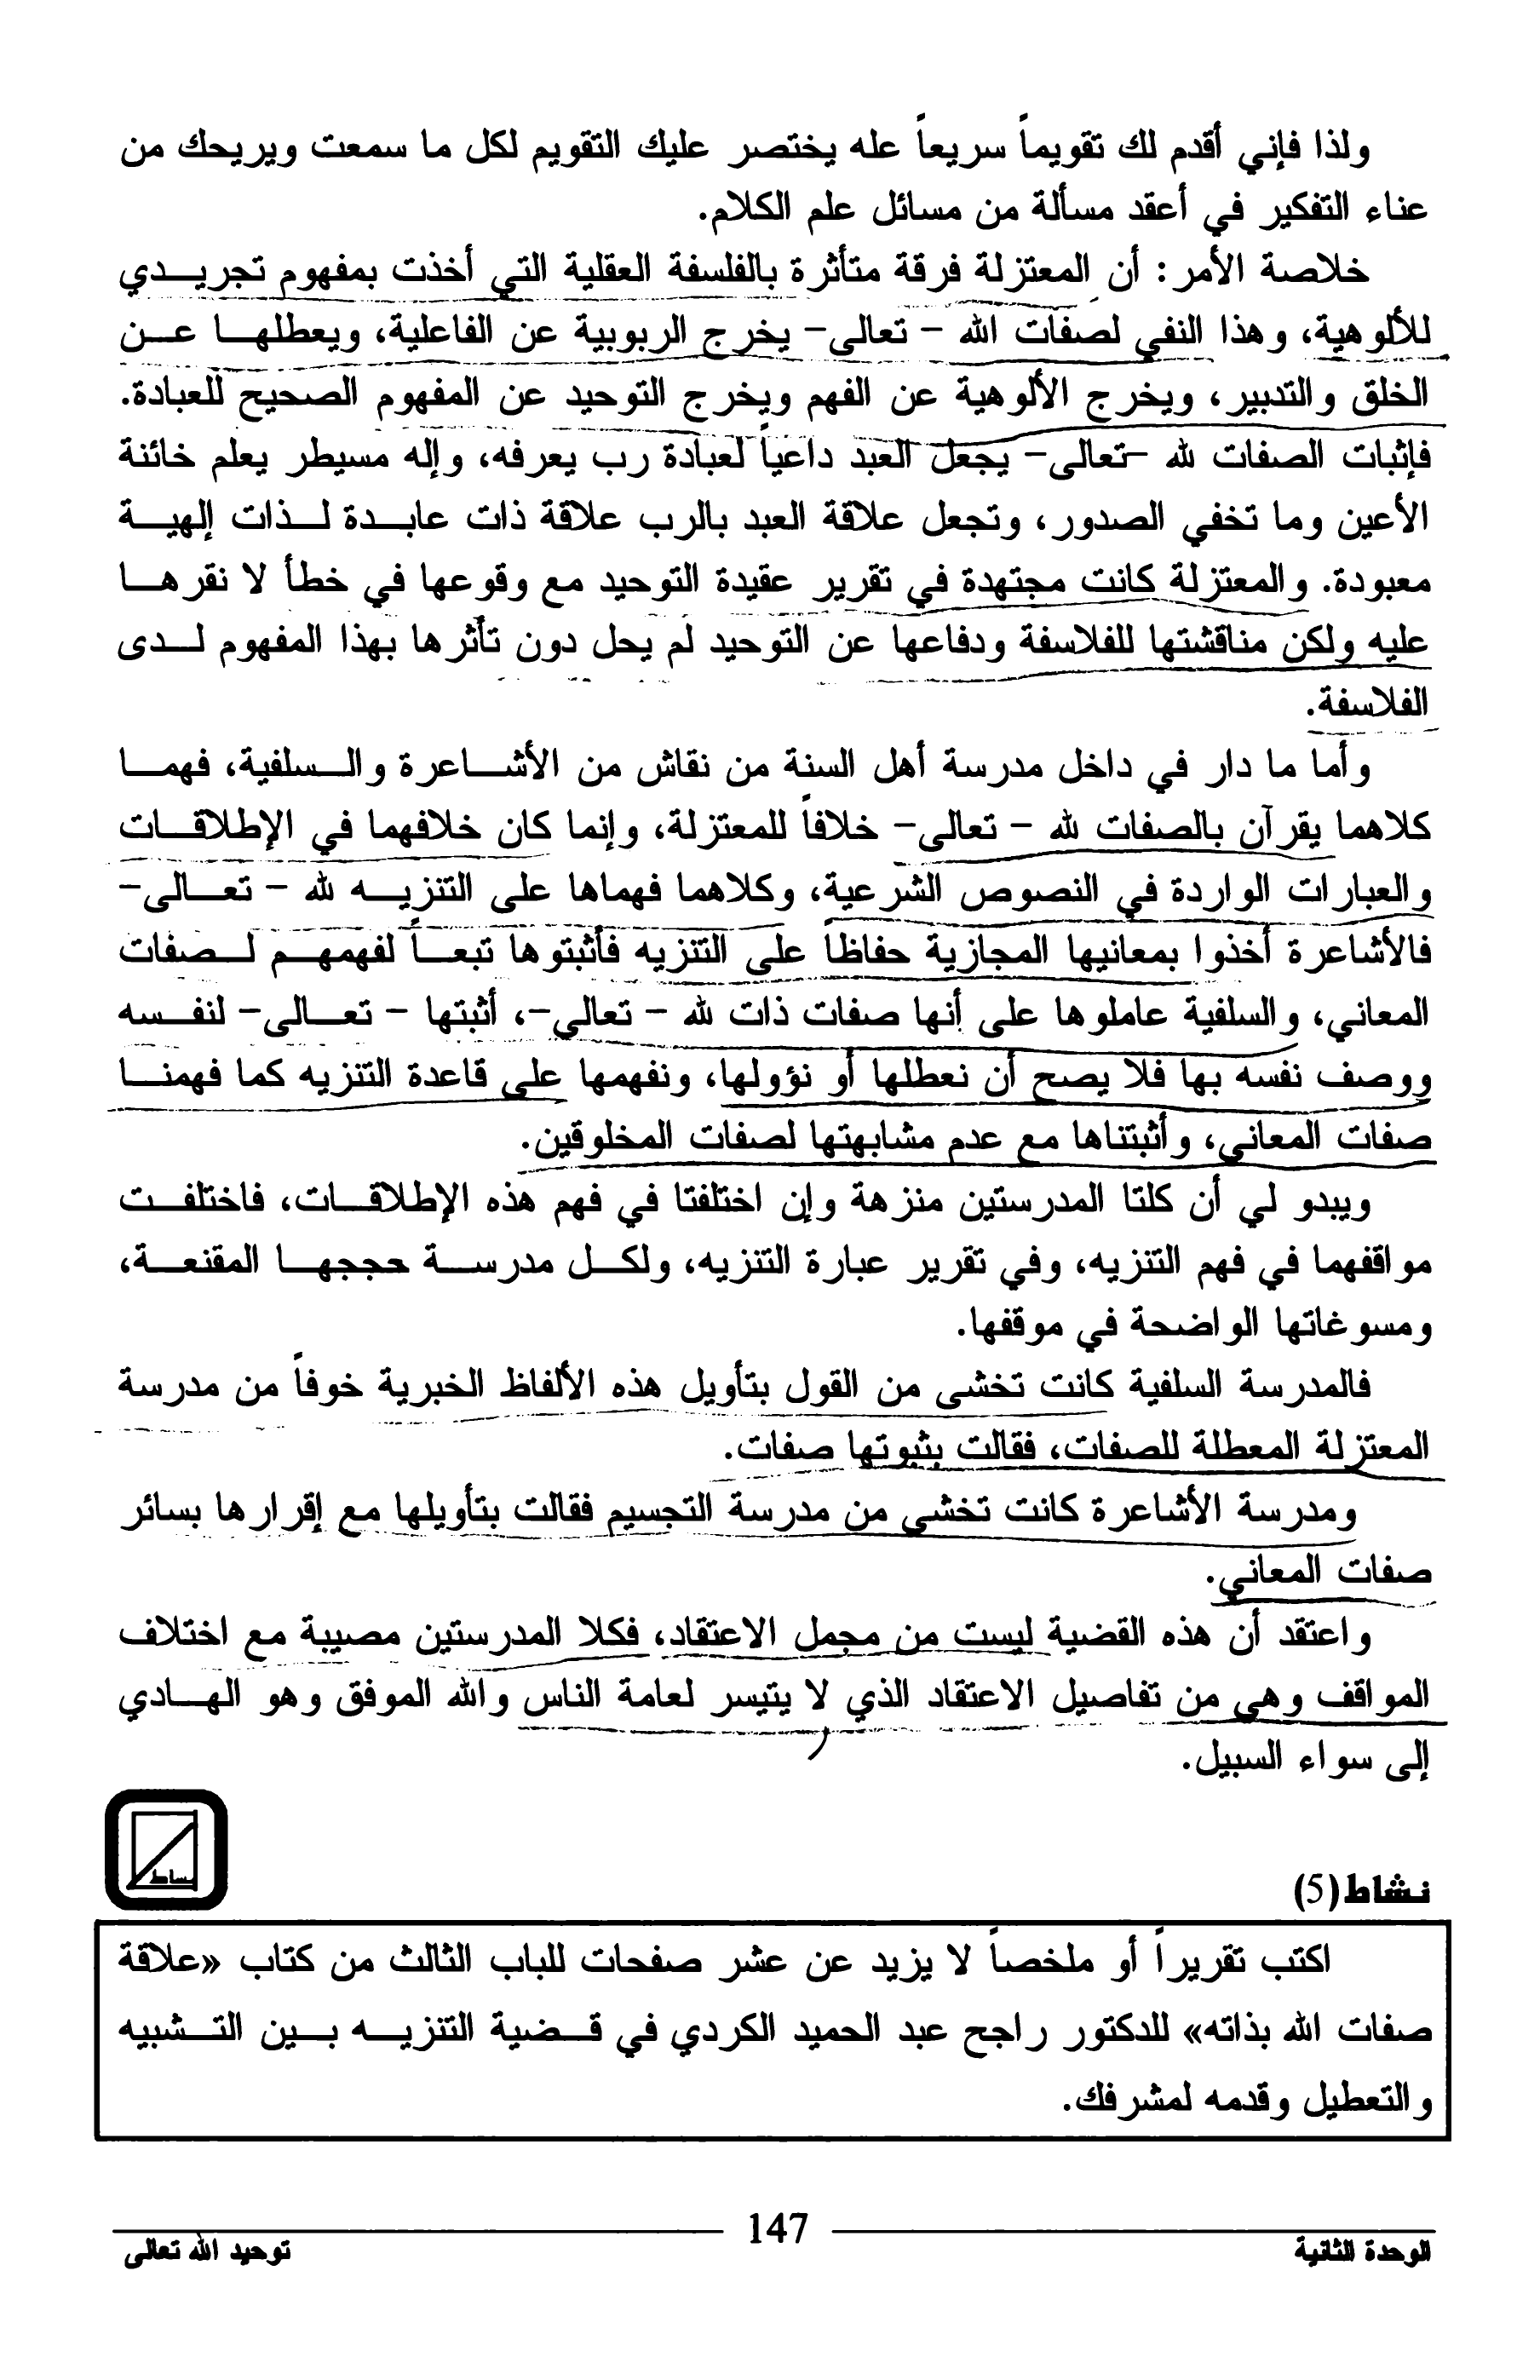 ولذا فإني أقدم لك تقويماً سريعاً عله يختصر عليك التقويم لكل ما سمعت ويريحك من
عناء التفكير في أعقد مسألة من مسائل علم الكلام.
خلاصة الأمر: أن المعتزلة فرقة متأثرة بالفلسفة العقلية التي أخذت بمفهوم تجريدي
للألوهية، وهذا النفي لصفات الله – تعالى– يخرج الربوبية عن الفاعلية، ويعطلها عن
الخلق والتدبير، ويخرج الألوهية عن الفهم ويخرج التوحيد عن المفهوم الصحيح للعبادة.
فإثبات الصفات لله –تعالى– يجعل العبد داعياً لعبادة رب يعرفه، وإله مسيطر يعلم خائنة
الأعين وما تخفي الصدور، وتجعل علاقة العبد بالرب علاقة ذات عابدة لذات إلهية
معبودة. والمعتزلة كانت مجتهدة في تقرير عقيدة التوحيد مع وقوعها في خطأ لا نقرها
عليه ولكن مناقشتها للفلاسفة ودفاعها عن التوحيد لم يحل دون تأثرها بهذا المفهوم لدى
الفلاسفة.
وأما ما دار في داخل مدرسة أهل السنة من نقاش من الأشاعرة والسلفية، فهما
كلاهما يقرآن بالصفات لله – تعالى– خلافاً للمعتزلة، وإنما كان خلافهما في الإطلاقات
والعبارات الواردة في النصوص الشرعية، وكلاهما فهماها على التنزيه لله – تعالى–
فالأشاعرة أخذوا بمعانيها المجازية حفاظاً على التنزيه فأثبتوها تبعاً لفهمهم لصفات
المعاني، والسلفية عاملوها على أنها صفات ذات لله – تعالى–، أثبتها – تعالى– لنفسه
ووصف نفسه بها فلا يصح أن نعطلها أو نؤولها، ونفهمها على قاعدة التنزيه كما فهمنا
صفات المعاني، وأثبتناها مع عدم مشابهتها لصفات المخلوقين.
ويبدو لي أن كلتا المدرستين منزهة وإن اختلفتا في فهم هذه الإطلاقات، فاختلفت
مواقفهما في فهم التنزيه، وفي تقرير عبارة التنزيه، ولكل مدرسة حججها المقنعة،
ومسوغاتها الواضحة في موقفها.
فالمدرسة السلفية كانت تخشى من القول بتأويل هذه الألفاظ الخبرية خوفاً من مدرسة
المعتزلة المعطلة للصفات، فقالت بثبوتها صفات.
ومدرسة الأشاعرة كانت تخشى من مدرسة التجسيم فقالت بتأويلها مع إقرارها بسائر
صفات المعاني.
واعتقد أن هذه القضية ليست من مجمل الاعتقاد، فكلا المدرستين مصيبة مع اختلاف
المواقف وهي من تفاصيل الاعتقاد الذي لا يتيسر لعامة الناس والله الموفق وهو الهادي
إلى سواء السبيل.
نشاط
نشاط(5)
اكتب تقريراً أو ملخصاً لا يزيد عن عشر صفحات للباب الثالث من كتاب «علاقة
صفات الله بذاته» للدكتور راجح عبد الحميد الكردي في قضية التنزيه بين التشبيه
والتعطيل وقدمه لمشرفك.
147
الوحدة الثانية توحيد الله تعالى